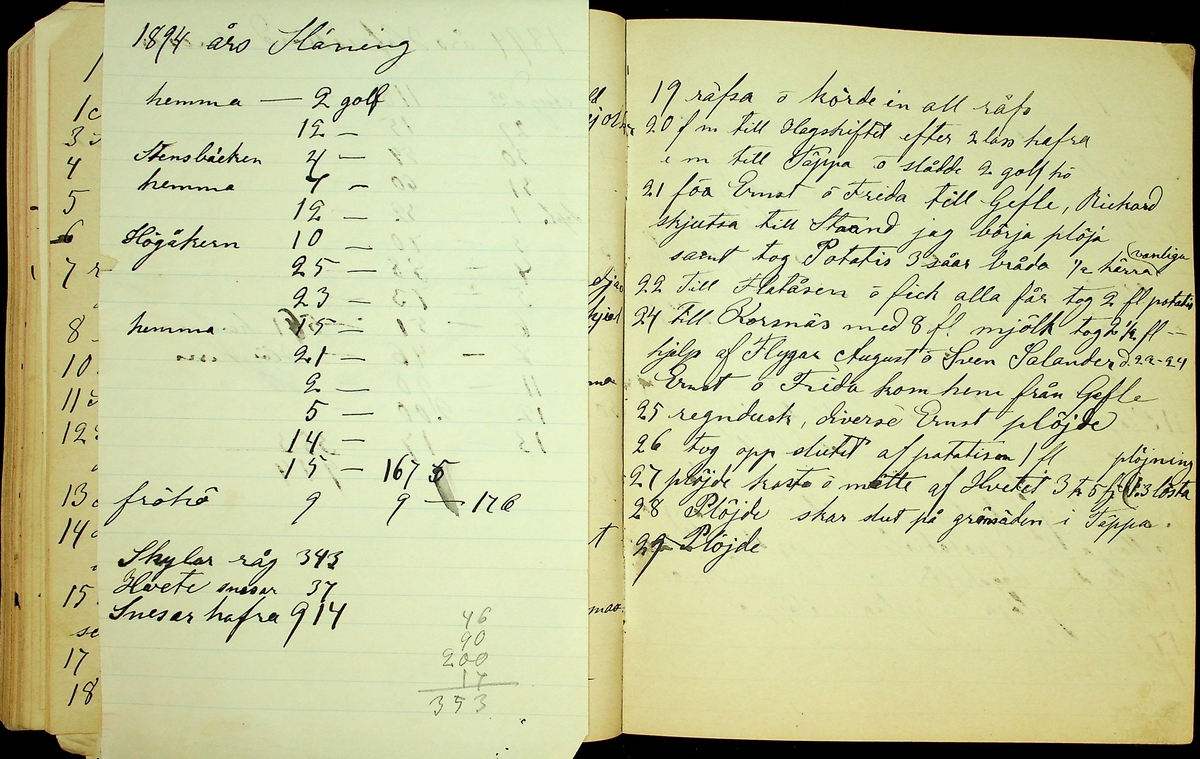 1894 års Slåning
hemma — 2 golf
12 —
Stensbäcken 4 —
hemma 4 —
12 —
Högåkern 10 —
25 —
23 —
hemma 15 —
21 — —
2 —
5 —
14 —
15 — 167
fröhö 9 9 — 176
Skylar råg 343
Hvete snesar 37
Snesar hafra 914
46
90
200
17
353
1
3
4
5
6
7
8
10
11
12
13
14
15
17
18
19 räfsa ö körde in all räfs
20 f m till Hagskiftet efter 2 lass hafra
e m till Täppa ö slådde 2 golf hö
21 föa Ernst ö Frida till Gefle, Rickard
skjutsa till Strand jag börja plöja
samt tog Potatis 3 såar bråda ½ kärra vanliga
22 Till Hatåsen ö fick alla får tog 2 fl potatis
24 till Korsnäs med 8 fl. mjölk tog 2½ fl —
hjelp af Flygar August ö Sven Salander d. 22-24
Ernst ö Frida kom hem från Gefle
25 regndusk, diverse Ernst plöjde
26 tog opp slutet af potatisen 1 fl plöjning
27 plöjde ö mätte af Hvetet 3 t 5 f
28 Plöjde skar slut på grönsäden i Täppa.
29 Plöjde